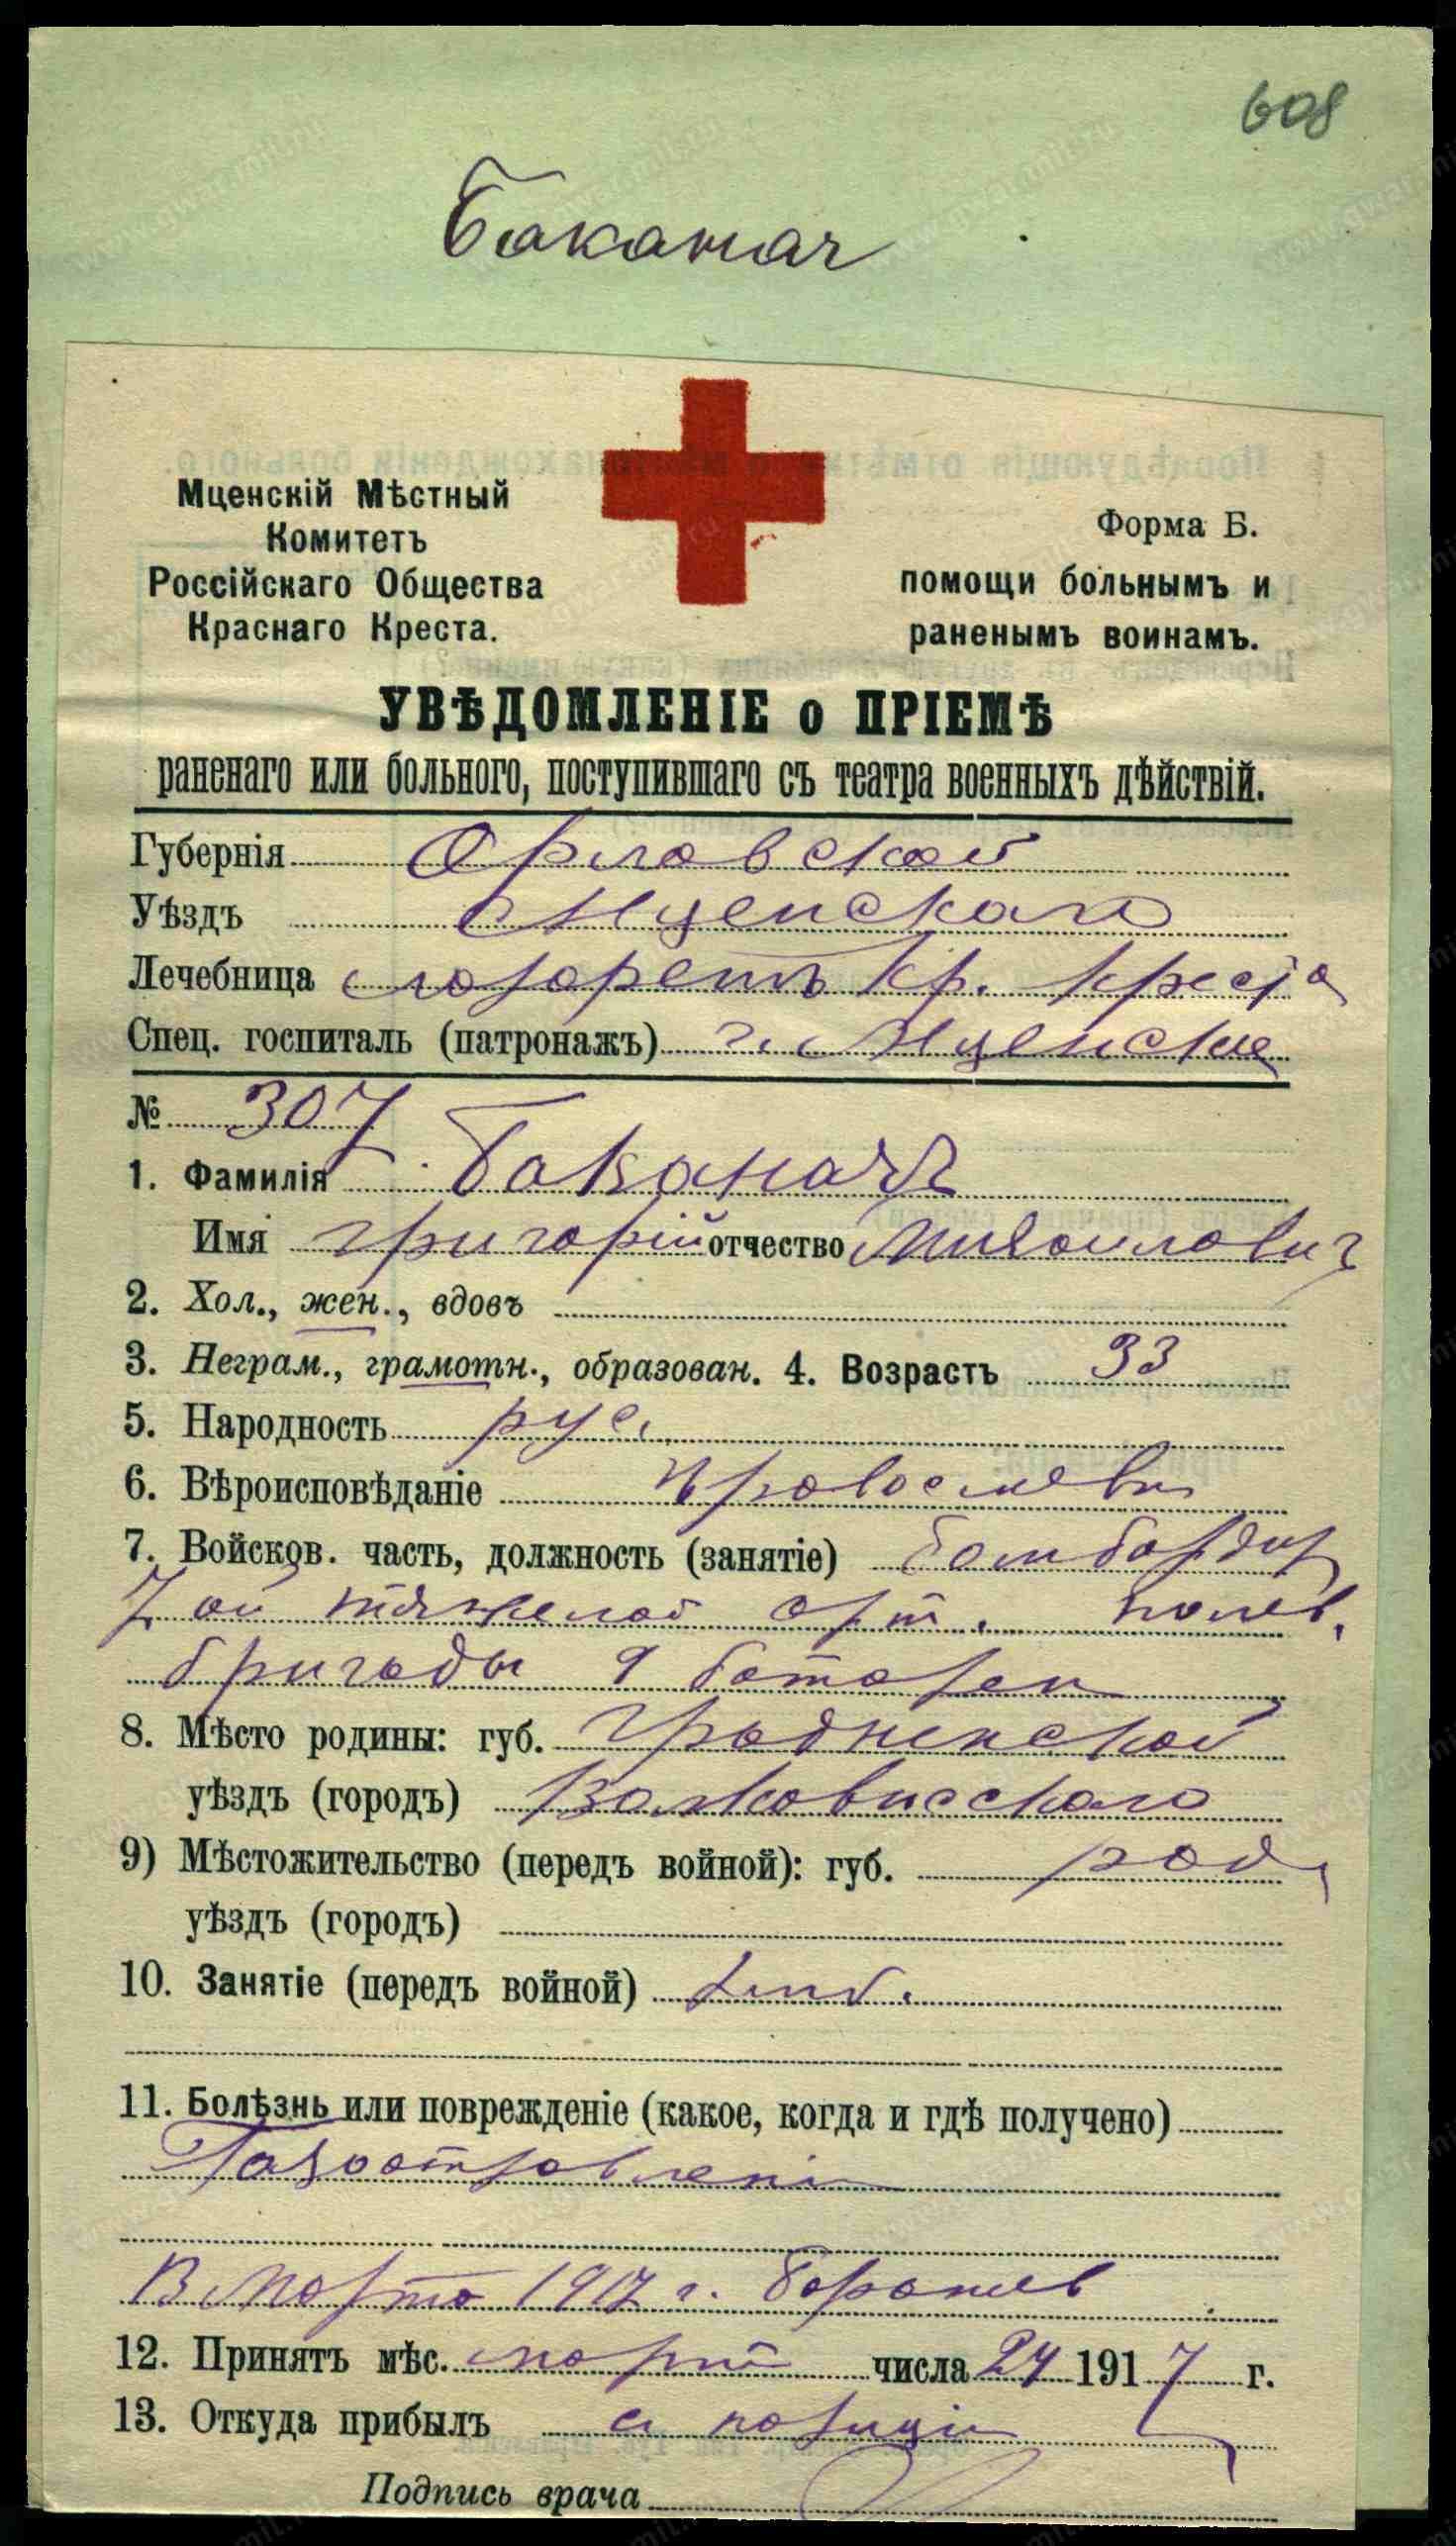 608
Баканач
Мценскій Мѣстный
Комитетъ
Россійскаго Общества
Краснаго Креста.
Форма Б.
помощи больнымъ и
раненымъ воинамъ.
УВѢДОМЛЕНІЕ о ПРІЕМѢ
раненаго или больного, поступившаго съ театра военныхъ дѣйствій.
Губернія Орловской
Уѣздъ Мценскаго
Лечебница лазаретъ Кр. Креста
Спец. госпиталь (патронажъ) г. Мценске
№ 307
1. Фамилія Баканачъ
Имя Григорій отчество Михайлович
2. Хол., жен., вдовъ
3. Неграм., грамотн., образован. 4. Возрастъ 33
5. Народность рус.
6. Вѣроисповѣданіе православн
7. Войсков. часть, должность (занятіе) бомбардир
7 ой тяжелой арт. полев.
бригады 9 батареи
8. Мѣсто родины: губ. Гродненской
уѣздъ (городъ) Волковисскаго
9) Мѣстожительство (передъ войной): губ. род.
уѣздъ (городъ)
10. Занятіе (передъ войной)
11. Болѣзнь или поврежденіе (какое, когда и гдѣ получено)
Газоотравлені
В марте 1917 г.
12. Принятъ мѣс. март числа 24 1917 г.
13. Откуда прибылъ с позиціи
Подпись врача